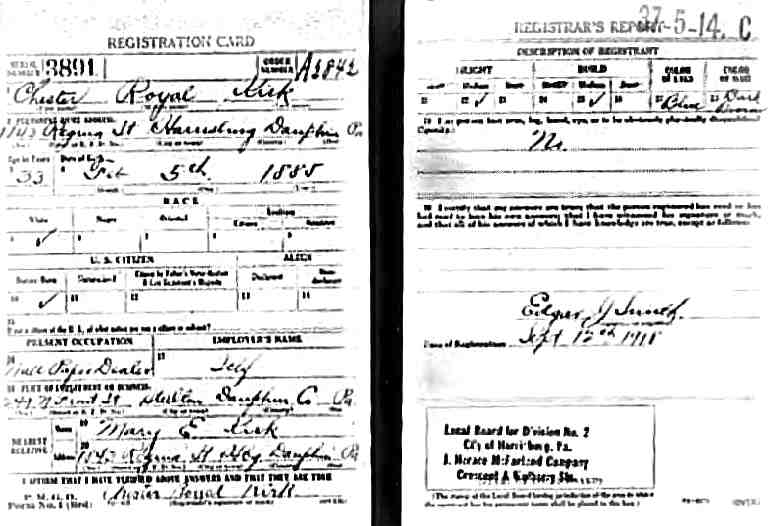 REGISTRATION CARD
SERIAL NUMBER 3891 ORDER NUMBER A2842
Chester Royal Kirk
Regina St Harrisburg Dauphin Pa
Age in Years Date of Birth
33 Feb 5th 1885
RACE
White Negro Oriental Indian
Citizen
U. S. CITIZEN ALIEN
Native Born Naturalized Citizen by Father's Naturalization Declarant
Before Registrant's Majority
10 11 12 13 14
15
PRESENT OCCUPATION EMPLOYER'S NAME
16 17
Wall Paper Dealer Self
18 PLACE OF EMPLOYMENT OR BUSINESS:
Front St Steelton Dauphin Co Pa
NEAREST RELATIVE
Name 19 Mary E Kirk
Address 20 Regina St Hbg Dauphin Pa
I AFFIRM THAT I HAVE VERIFIED ABOVE ANSWERS AND THAT THEY ARE TRUE
P. M. G. O.
Form No. 1 (Red) Chester Royal Kirk
(Registrant's signature or mark) (OVER)
REGISTRAR'S REPORT 37-5-14. C
DESCRIPTION OF REGISTRANT
HEIGHT BUILD COLOR OF EYES COLOR OF HAIR
Medium Short Slender Medium Stout
Blue Dark Brown
29 Has person lost arm, leg, hand, eye, or is he obviously physically disqualified?
(Specify.)
No
30 I certify that my answers are true; that the person registered has read or has
had read to him his own answers; that I have witnessed his signature or mark,
and that all of his answers of which I have knowledge are true, except as follows:
Edgar J Smith
Date of Registration Sept 12th 1918
Local Board for Division No. 2
City of Harrisburg, Pa.
J. Horace McFarland Company
Crescent & Mulberry Sts.
(The stamp of the Local Board having jurisdiction of the area in which
the registrant has his permanent home shall be placed in this box.)
(OVER)